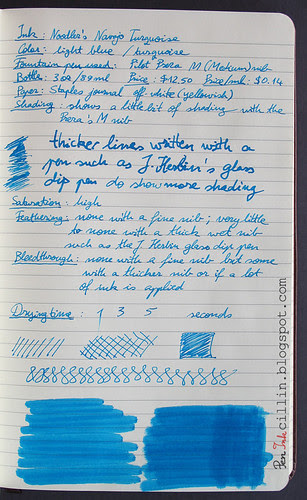 Ink: Noodler's Navajo Turquoise
Color: light blue / turquoise
Fountain pen used: Pilot Prera M (Medium) nib
Bottle: 3 oz / 89 ml Price: $12.50 Price/ml: $0.14
Paper: Staples journal off-white (yellowish)
Shading: shows a little bit of shading with the
Prera's M nib
thicker lines written with a
pen such as J. Herbin's glass
dip pen do show more shading
Saturation: high
Feathering: none with a fine nib; very little
to none with a thick wet nib
such as the J. Herbin glass dip pen
Bleedthrough: none with a fine nib but some
with a thicker nib or if a lot
of ink is applied
Drying time: 1 3 5 seconds
Pen Ink cillin.blogspot.com